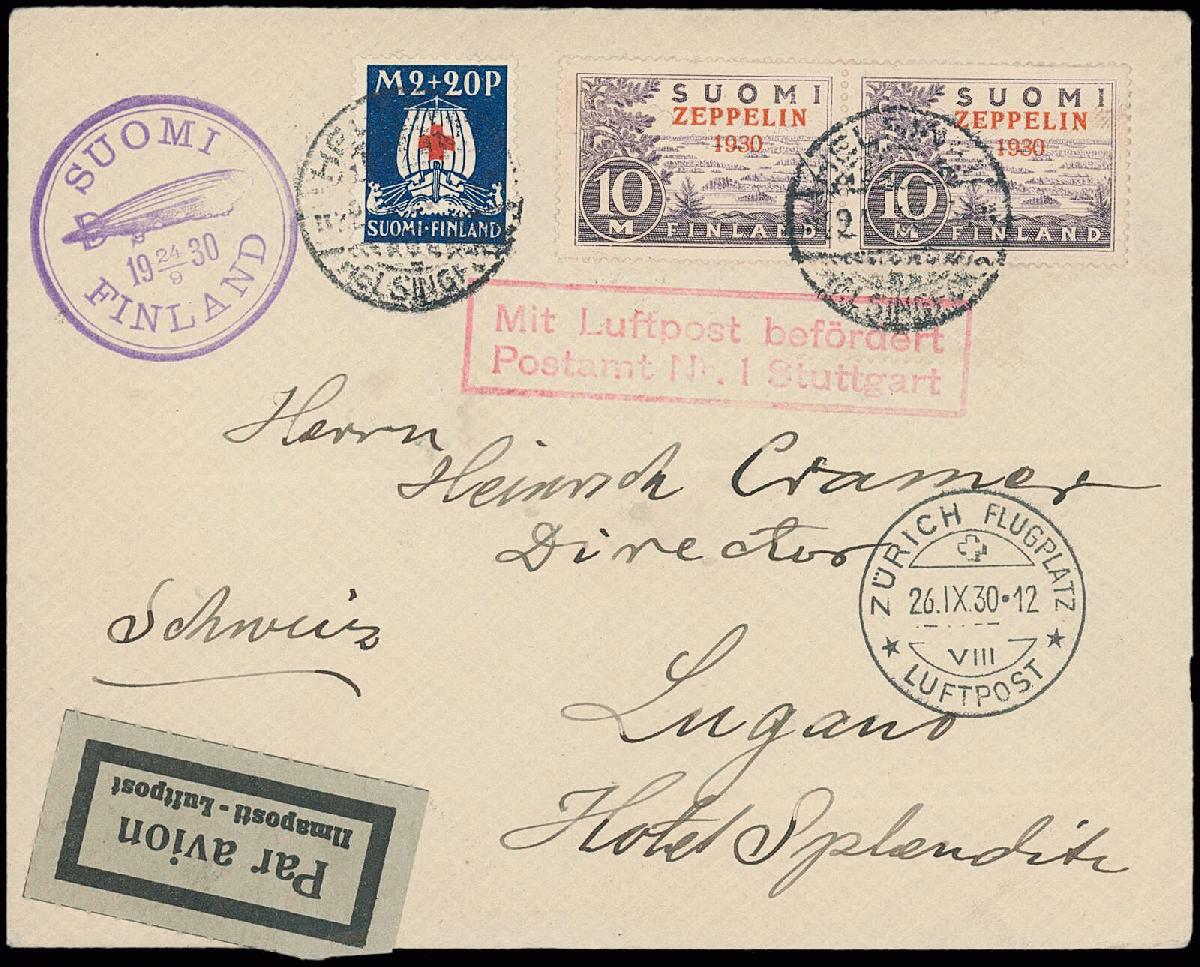 SUOMI
19 24/9 30
FINLAND
M2+20P
SUOMI-FINLAND
SUOMI
ZEPPELIN
1930
10
M
FINLAND
SUOMI
ZEPPELIN
1930
10
M
FINLAND
Mit Luftpost befördert
Postamt Nr. 1 Stuttgart
Herrn
Heinrich Cramer
Director
Schweiz
Lugano
Hotel Splendite
ZÜRICH FLUGPLATZ
26.IX.30•12
VIII
LUFTPOST
Par avion
Ilmaposti - Luftpost